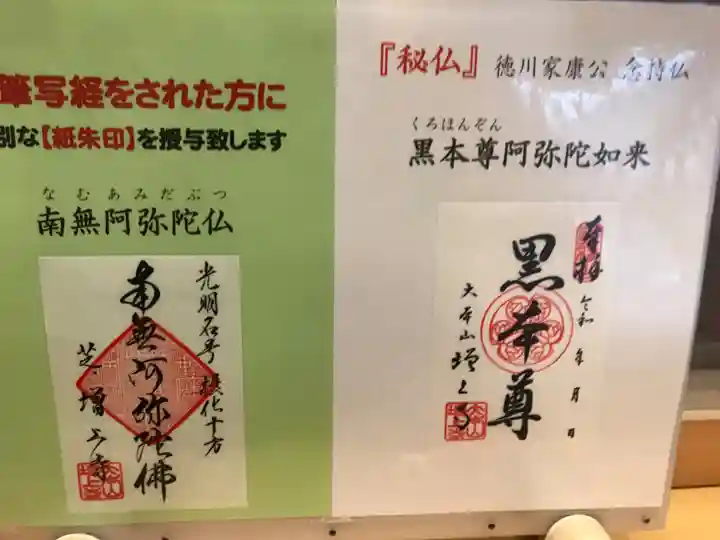 筆写経をされた方に
別な【紙朱印】を授与致します
なむあみだぶつ
南無阿弥陀仏
光明名号摂化十方
南無阿弥陀佛
芝増上寺
『秘仏』 徳川家康公 念持仏
くろほんぞん
黒本尊阿弥陀如来
奉拝 令和 年 月 日
黒本尊
大本山 増上寺